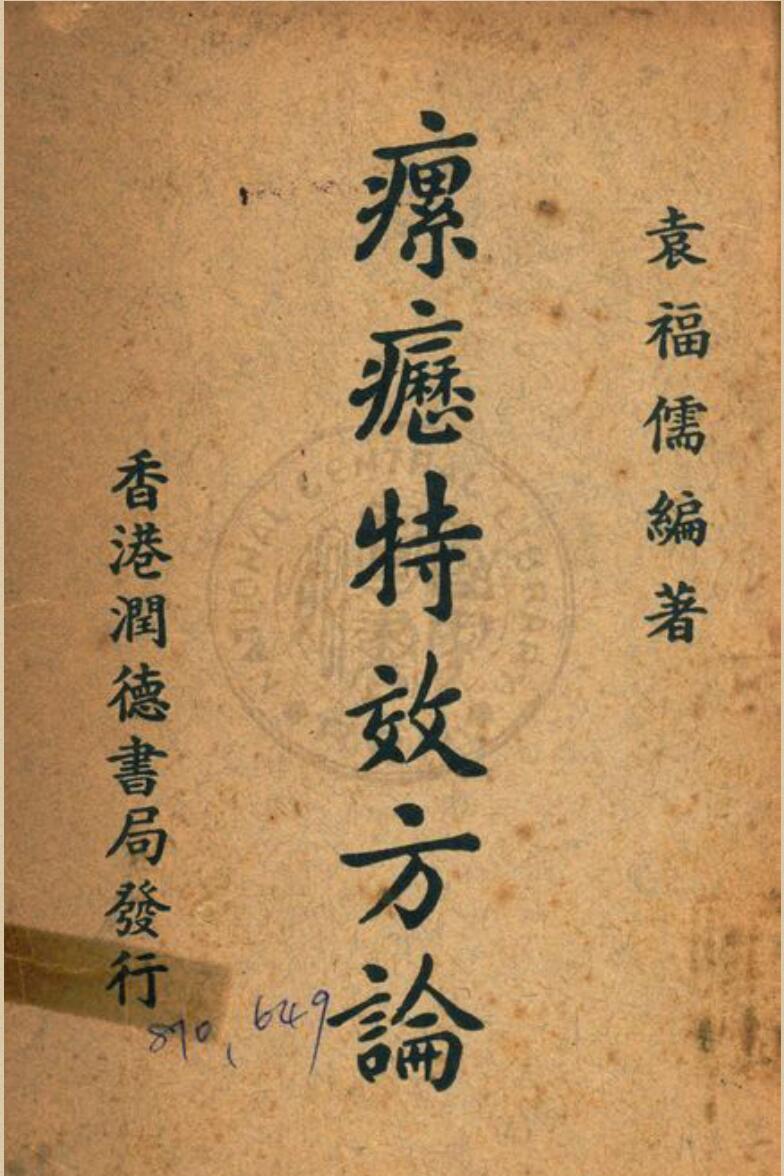 袁福儒編著
瘰癧特效方論
香港潤德書局發行
NATIONAL CENTRAL LIBRARY